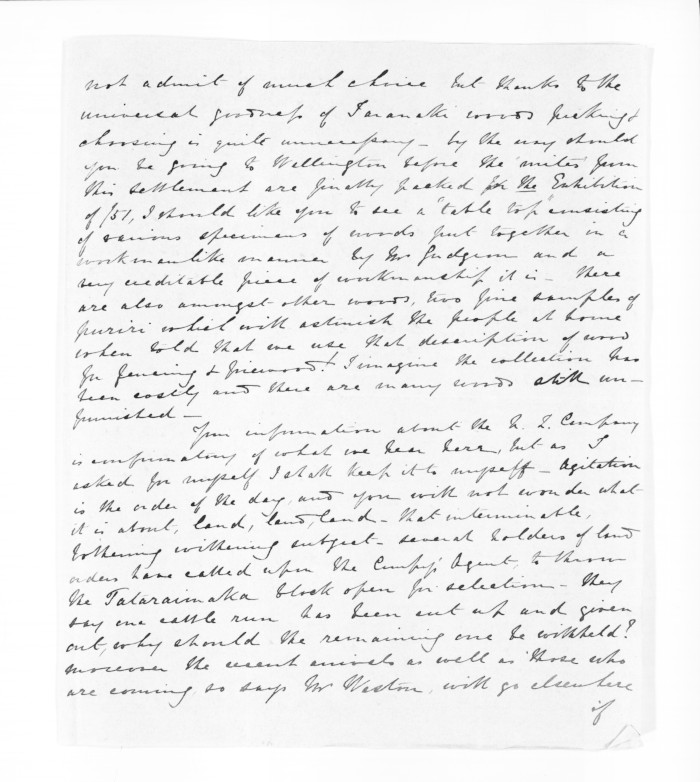 not admit of much choice but thanks to the
universal goodness of Taranaki woods picking &
choosing is quite unnecessary - by the way should
you be going to Wellington before the mites from
this settlement are finally packed for the Exhibition
of /51, I should like you to see a "table top" consisting
of various specimens of woods put together in a
workmanlike manner by Mr Gudgeon and a
very creditable piece of workmanship it is - there
are also amongst other woods, two fine samples of
puriri which will astonish the people at home
when told that we use that description of wood
for fencing & firewood! I imagine the collection has
been costly and there are many woods still un-
furnished -
Your information about the N. Z. Company
is confirmatory of what we hear here, but as I
asked for myself I shall keep it to myself - Agitation
is the order of the day, and you will not wonder what
it is about, land, land, land - that interminable,
bothering withering subject - several holders of land
orders have called upon the Compy's Agent, to throw
the Tataraimaka block open for selection - they
say one cattle run has been cut up and given
out, why should the remaining one be withheld?
moreover the recent arrivals as well as those who
are coming so says Mr Weston, will go elsewhere
if